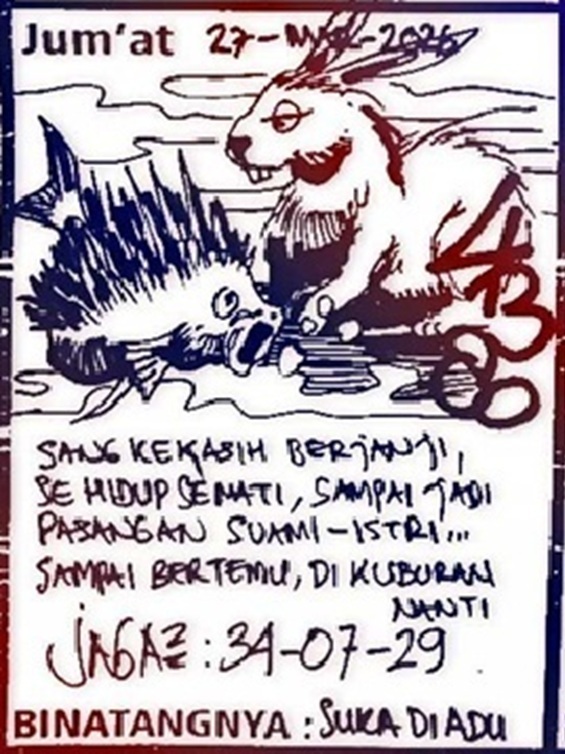 Jum'at 27-MAR-2026
4
3
8
SANG KEKASIH BERJANJI,
SE HIDUP SEMATI, SAMPAI JADI
PASANGAN SUAMI-ISTRI...
SAMPAI BERTEMU, DI KUBURAN
NANTI
JAGA2 : 34-07-29
BINATANGNYA : SUKA DI ADU